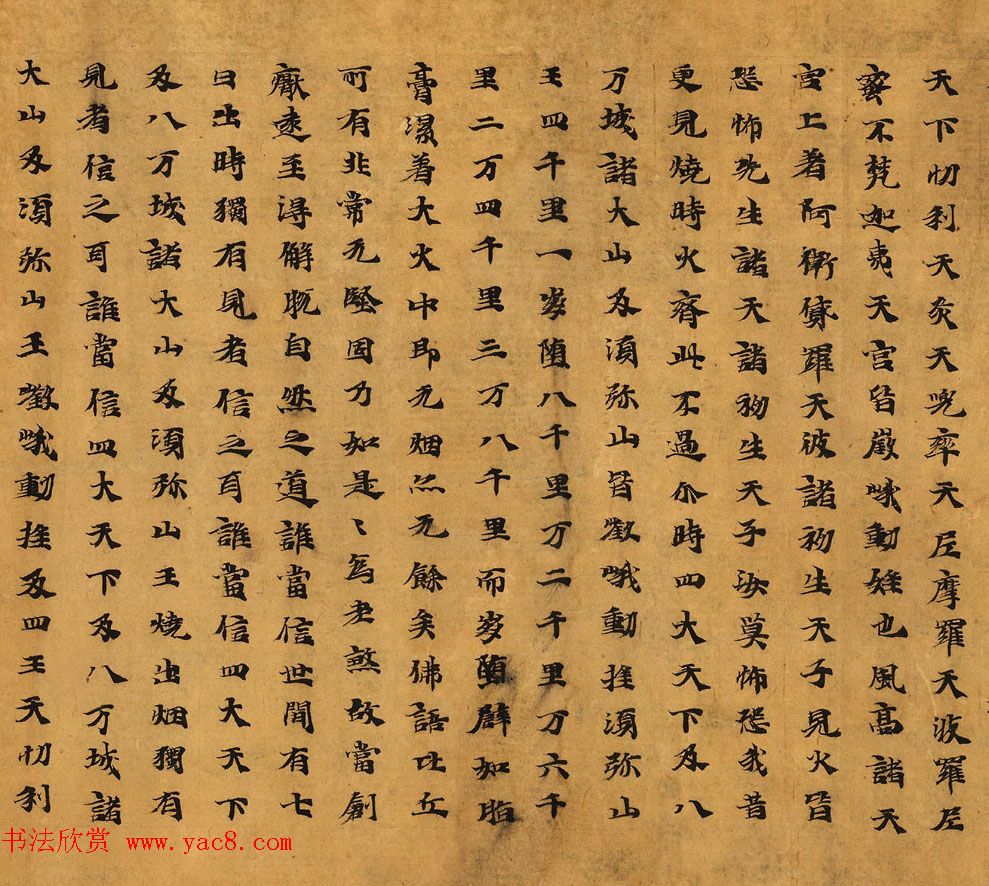 天下忉利天炎天兜率天尼摩羅天波羅尼
蜜不梵迦夷天宮皆嚴峨動𡽪也風高諸天
宮上著阿衛貨羅天彼諸初生天子見火皆
恐怖先生諸天諸初生天子汝莫怖恐我昔
更見燒時火齊此不過尒時四大天下及八
万城諸大山及須弥山皆嶔峨動搖須弥山
王四千里一崩墮八千里万二千里万六千
里二万四千里三万八千里而崩墮辟如脂
膏渥著大火中即无烟炁无餘矣佛語比丘
所有非常无堅固乃如是〻為老煞故當創
厭遠至得解脫自然之道誰當信世間有七
日出時獨有見者信之耳誰當信四大天下
及八万城諸大山及須弥山王燒出烟獨有
見者信之耳誰當信四大天下及八万城諸
大山及須弥山王嶔峨動搖及四王天忉利
书法欣赏 www.yac8.com